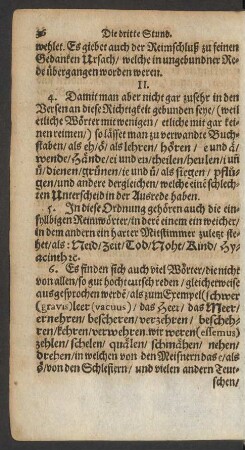 36 Die dritte Stund.
wehlet. Es giebet auch der Reimschluß zu seinen
Gedanken Ursach/ welche in ungebundner Re-
de übergangen worden weren.
II.
4. Damit man aber nicht gar zusehr in den
Versen an diese Richtigkeit gebunden seye/ (weil
etliche Wörter mit wenigen/ etliche mit gar kei-
nen reimen/) so lässet man zu verwandte Buch-
staben/ als eh/ö/ als lehren/ hören/ e und ä/
wende/ Hände/ ei und en/ heilen/ heulen/ ü uñ
ü/ dienen/ grünen/ ie und ü/ als siegen/ pflü-
gen/ und andere dergleichen/ welche eine schlech-
ten Unterscheid in der Ausrede haben.
5. In diese Ordnung gehören auch die ein-
syllbigen Reimwörter/ in dere einem ein weicher/
in dem andern ein harter Mitstimmer zuletz ste-
het/ als: Neid/ Zeit/ Tod/ Noht/ Kind/ Hy-
acinth ꝛc.
6. Es finden sich auch viel Wörter/ die nicht
von allen/ so gut hochteutsch reden/ gleicherweise
ausgesprochen werdē/ als zum Exempel (schwer
(gravis) leer (vacuus)/ das Heer/ das Meer/
ernehren/ bescheren/ verzehren/ bescheh-
ren/ kehren/ verwehren. wir weren (essemus)
zehlen/ schelen/ quälen/ schmähen/ nehen/
drehen/ in welchen von den Meisnern das e/ als
ö/ von den Schlesiern/ und vielen andern Teut-
schen/